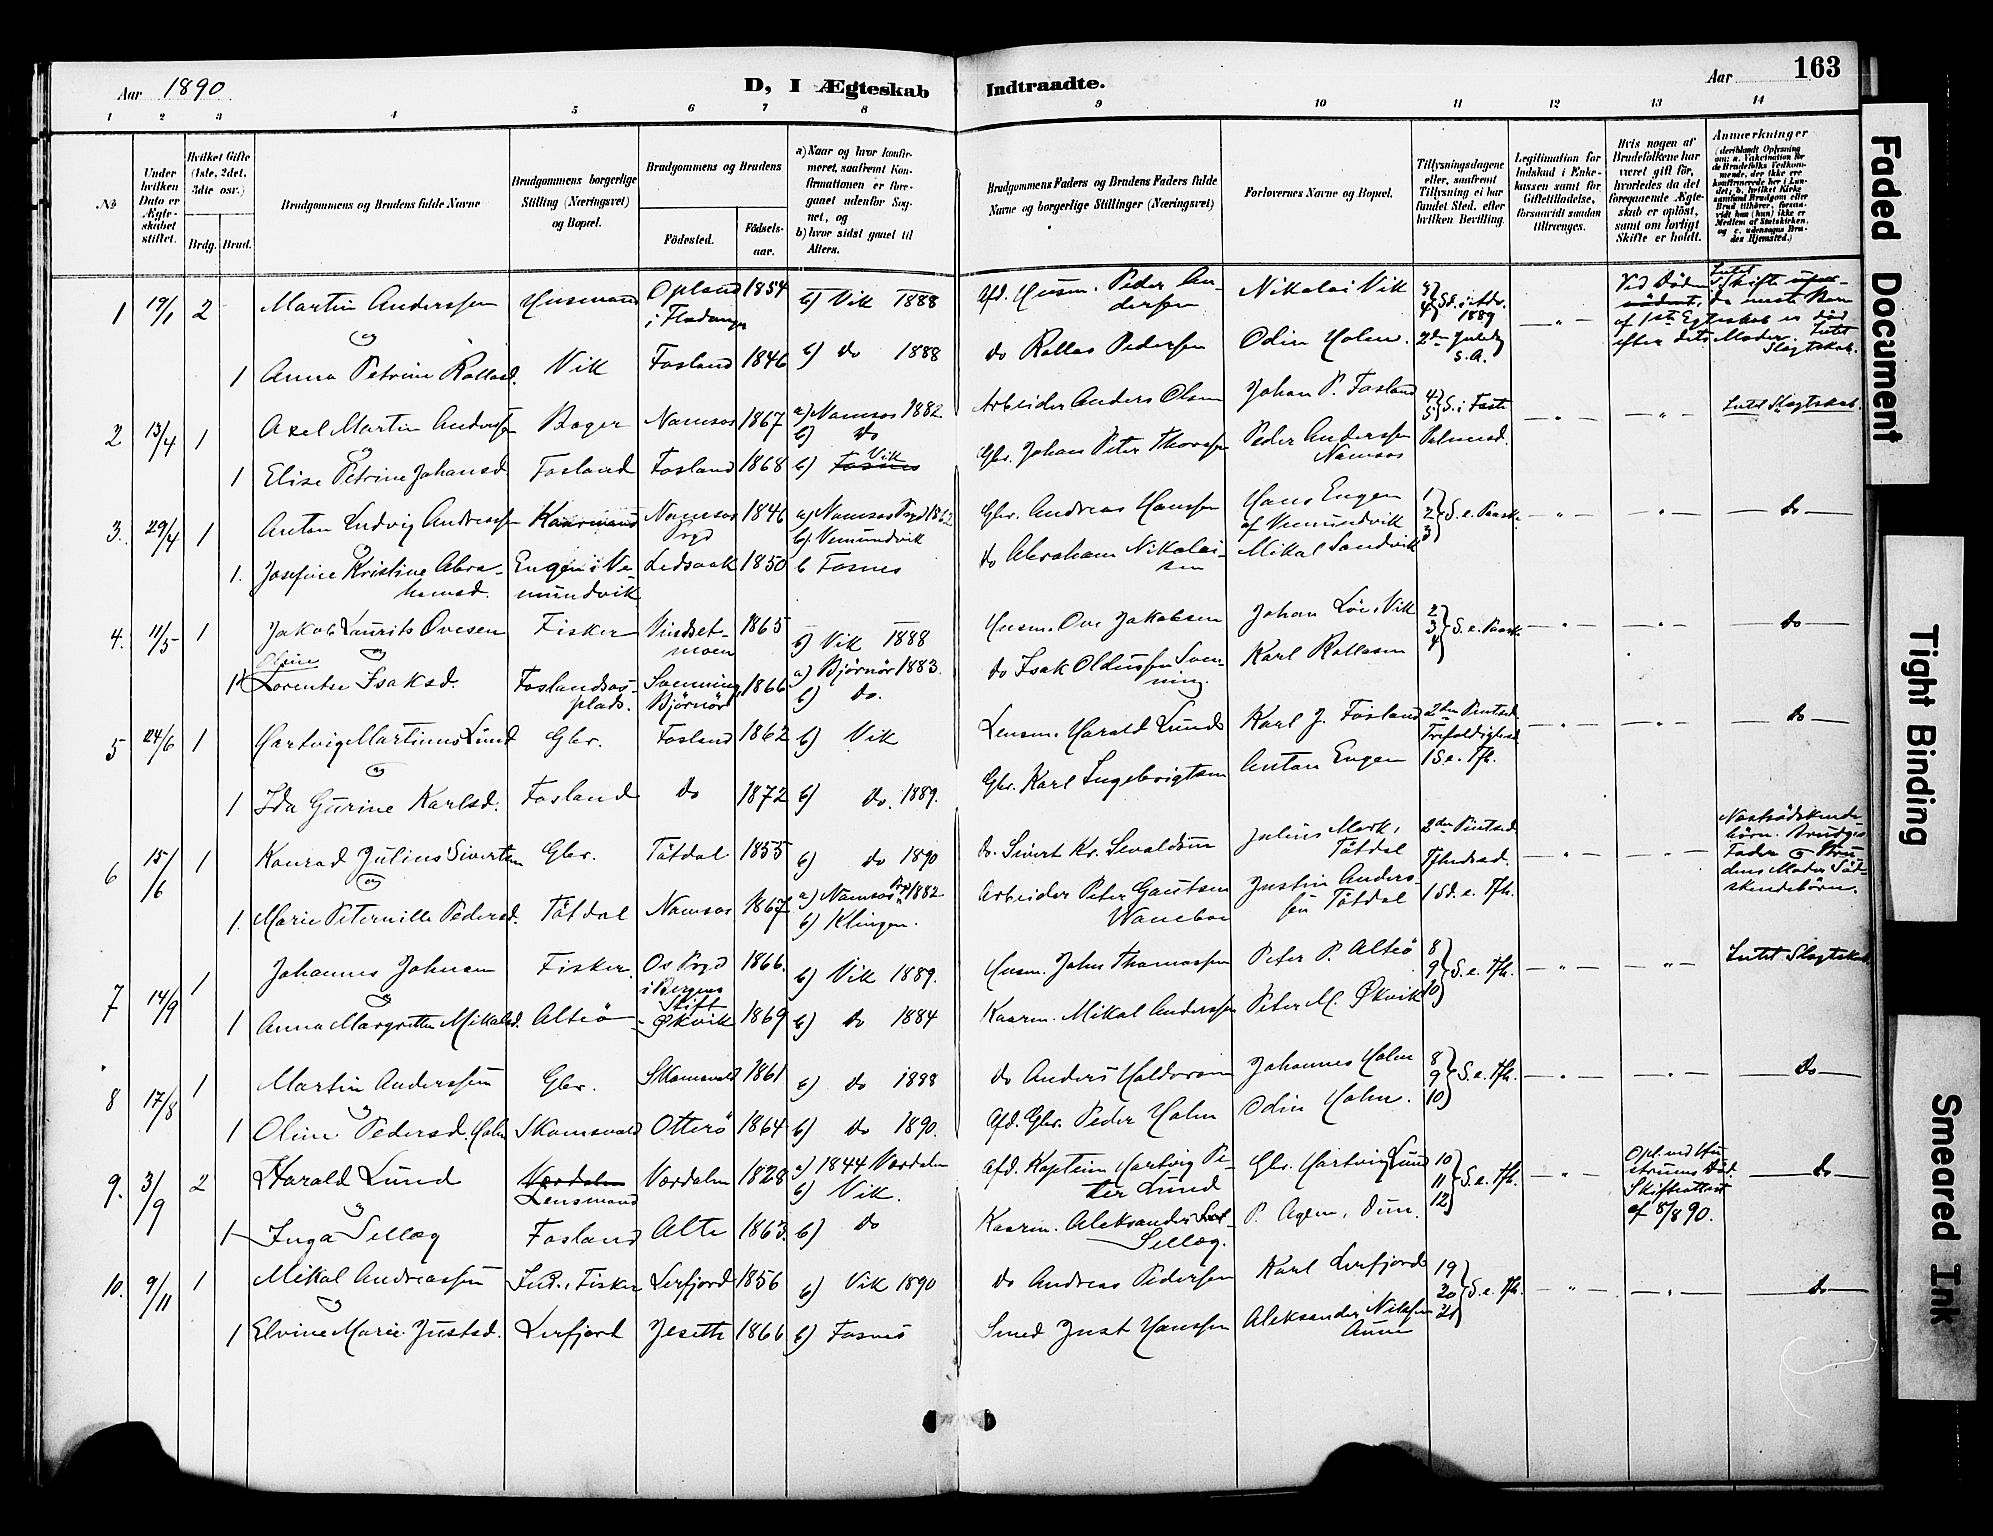 Aar 1890.
D, I Ægteskab Indtraadte.
Aar 163
1 2 3 4 5 6 7 8 9 10 11 12 13 14
№
Under hvilken Dato er Ægteskabet stiftet.
Hvilket Gifte (1ste, 2det, 3die osv.)
Brdg. Brud.
Brudgommens og Brudens fulde Navne
Brudgommens borgerlige Stilling (Næringsvei) og Bopæl.
Brudgommens og Brudens
Födested. Födselsaar.
a) Naar og hvor konfirmeret, saafremt Konfirmationen er foregaaet udenfor Sognet, og
b) hvor sidst gaaet til Alters.
Brudgommens Faders og Brudens Faders fulde Navne og borgerlige Stillinger (Næringsvei)
Forlovernes Navne og Bopæl.
Tillysningsdagene eller, saafremt Tillysning ei har fundet Sted, efter hvilken Bevilling.
Legitimation for Indskud i Enkekassen samt for Giftetilladelse, forsaavidt saadan tiltrænges.
Hvis nogen af Brudefolkene har været gift för, hvorledes da det foregaaende Ægteskab er oplöst, samt om lovligt Skifte er holdt.
Anmærkninger
1 19/1 2 Martin Anderssen Husmand Opland i Fladanger 1854 b) Vik 1888 Afd. Husm. Peder Andersen Nikolai Vik 3 4 Sd. i Adv. 1889 — " — Ved Döden
og
1 Anna Petrine Rollasd. Vik Fosland 1846 b) do 1888 do Rollas Pedersen Odin Holm. 2den Juledag s. A.
2 13/4 1 Axel Martin Anderssen Bager Namsos 1867 a) Namsos 1882 b) do Arbeider Anders Olsen Johan P. Fosland 4 5 S. i Faste — " — — " — Intet Slægtskab.
og
1 Elise Petrine Johansd. Fosland Fosland 1868 b) Fosnes Vik Gbr. Johan Peter Thorssen Peder Anderssen Namsos Palmesd.
3. 29/4 1 Anton Ludvig Andreassen Kaarmand Namsos Prgd 1846 a) Namsos Prgd 1862 b) Vemundvik Gbr. Andreas Hanssen Hans Engen af Vemundvik 1 2 3 S. e. Paaske — " — — " — — do —
og
1. Josefine Kristine Abrahamsd. Engen i Vemundvik Ledsaak 1850 b Fosnes do Abraham Nikolaisen Mikal Sandvik
4. 11/5 1 Jakob Laurits Ovesen Fisker Vindsetmoen 1865 b) Vik 1888 Husm. Ove Jakobsen Johan Löv, Vik 2 3 4 S. e. Paaske — " — — " — do —
og
1 Olsine Lorentse Isaksd. Foslandsosplads. Svenning Björnör 1866 a) Björnör 1883. b) do. do Isak Oldussen Svenning. Karl Rollasen
5 24/6 1 Hartvig Martinus Lund Gbr. Fosland 1862 b) Vik Lensm. Harald Lund Karl J. Fosland 2den Pintsed. Trefoldighed — " — — " — — do —
og
1 Ida Gurine Karlsd. Fosland do 1872 b) do. 1889. Gbr. Karl Ingebrigtsen Anton Engen 1 S. e. Tfh.
6 15/6 1 Konrad Julius Sivertsen Gbr. Tötdal 1855 b) do 1890 do. Sivert Kr. Sevaldsen Julius Mork, Tötdal 2den Pintsed. Tfhedssd. — " — — " — Næstsödskendebörn. Brudgs Fader og Brudens Moder Södskendebörn.
og
1. Marie Peternille Pedersd. Tötdal Namsos 1867 a) Namsos Prgd 1882 b) Klingen. Arbeider Peter Gautsen Wanebo Justin Anderssen Tötdal 1 Sd. e. Tfh.
7 14/9 1 Johannes Johnsen Fisker. Os Prgd i Bergens Stift 1866. b) Vik 1889. Husm. John Thomassen Peter P. Altiö 8 9 10 S. e. Tfh. — " — — " — Intet Slægtskab.
og
1 Anna Margrethe Mikalsd. Altiö Økvik 1869 b) do 1884 Kaarm. Mikal Anderssen Peter M. Økvik
8 17/8 1 Martin Anderssen Gbr. Skomsvold 1861 b) do 1888 do Anders Haldorsen Johannes Holm 8 9 10 S. e. Tfh. — " — — " — do —
og
1 Oline Pedersd. Holm Skomsvold Otterö 1864 b) do 1890. Afd. Gbr. Peder Holm Odin Holm.
9. 3/9 2 Harald Lund Værdalen Lensmand Værdalen 1828 a) 1844 Værdalen b) Vik. Afd. Kaptein Hartvig Peter Lund Gbr. Hartvig Lund 10 11 12 S. e. Tfh. — " — Opl. ved Hustruens Död. Skifteattest af 8/8 90. — do —
og
1 Inga Sellæg Fosland Alte 1863. b) do Kaarm. Aleksander Sellæg. P. Agdm, Dun.
10. 9/11 1 Mikal Andreassen Fisker Lerfjord 1856 b) Vik 1890 do Andreas Pedersen Karl Lerfjord 19 20 21 S. e. Tfh. — " — — " — do —
og
1 Elvine Marie Justsd. Lerfjord Jeseth 1866 b) Fosnes Smed Just Hanssen Aleksander Nilssen Aunn
Faded Document
Tight Binding
Smeared Ink